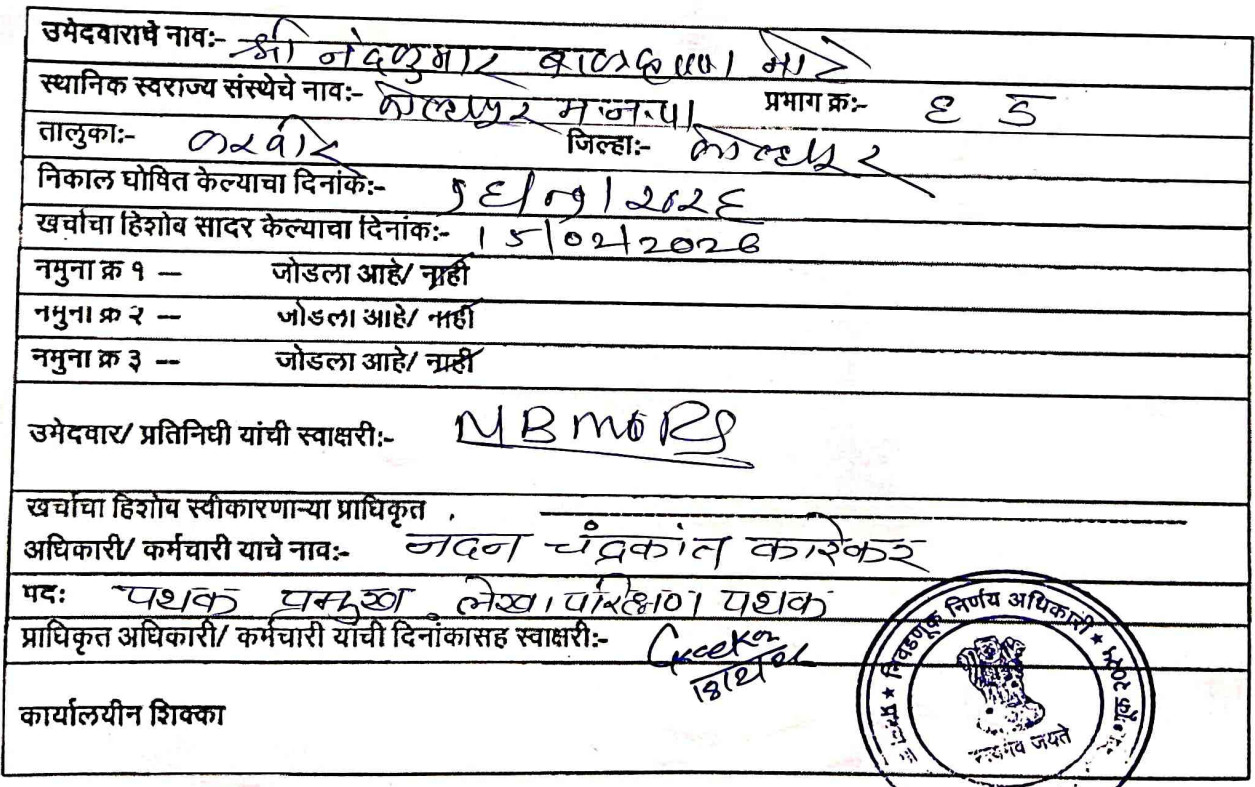 उमेदवाराचे नाव:- श्री नंदकुमार बाळकृष्ण मोरे
स्थानिक स्वराज्य संस्थेचे नाव:- कोल्हापूर म.न.पा प्रभाग क्र:- ६ ड
तालुका:- करवीर जिल्हा:- कोल्हापूर
निकाल घोषित केल्याचा दिनांक:- १६/०१/२०२६
खर्चाचा हिशोब सादर केल्याचा दिनांक:- 15/02/2026
नमुना क्र १ — जोडला आहे/ नाही
नमुना क्र २ — जोडला आहे/ नाही
नमुना क्र ३ -- जोडला आहे/ नाही
उमेदवार/ प्रतिनिधी यांची स्वाक्षरी:- NB More
खर्चाचा हिशोब स्वीकारणाऱ्या प्राधिकृत
अधिकारी/ कर्मचारी याचे नाव:- नदन चंद्रकांत कारेकर
पद: पथक प्रमुख लेखा परिक्षण पथक
प्राधिकृत अधिकारी/ कर्मचारी यांची दिनांकासह स्वाक्षरी:-
कार्यालयीन शिक्का
निवडणूक निर्णय अधिकारी
जयते